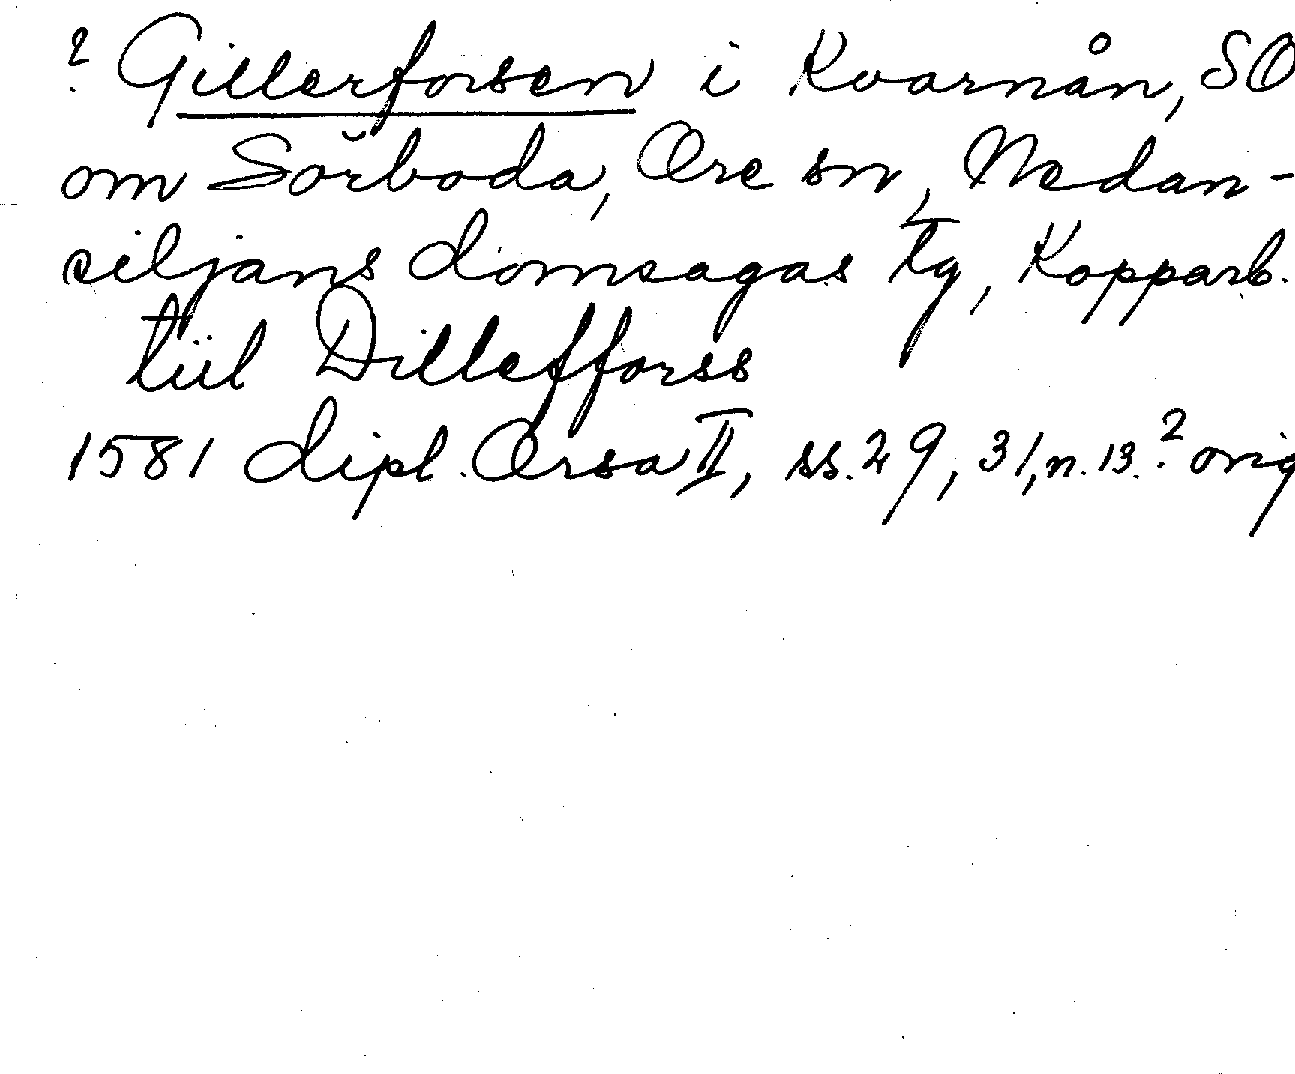 ? Gillerforsen i Kvarnån, SO
om Sörboda, Ore sn, Nedan-
siljans domsagas tg, Kopparb.
tiil Dilleffors​s
1581 dipl. Orsa II, ss. 29, 31, n. 13.? orig